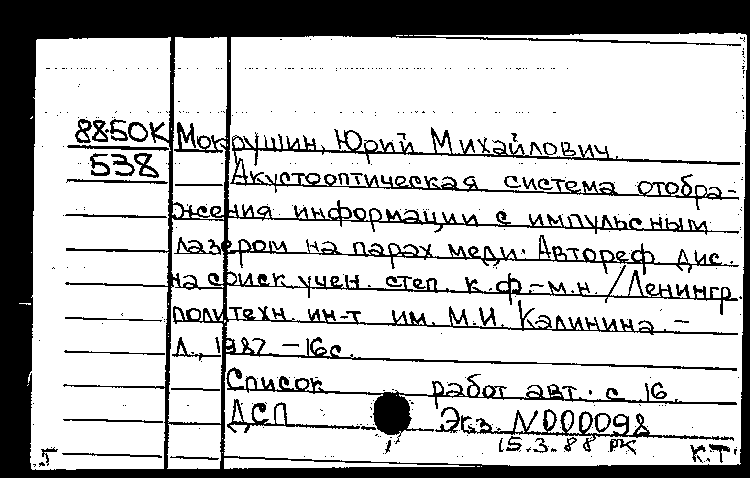 88-50К Мокрушин, Юрий Михайлович.
538 Акустооптическая система отобра-
жения информации с импульсным
лазером на парах меди. Автореф. дис.
на соиск. учен. степ. к.ф.-м.н. / Ленингр.
политехн. ин-т им. М.И. Калинина. -
Л., 1987. - 16с.
Список работ авт.: с 16.
ДСП Экз. N000098
15.3.88 РК
К.Т